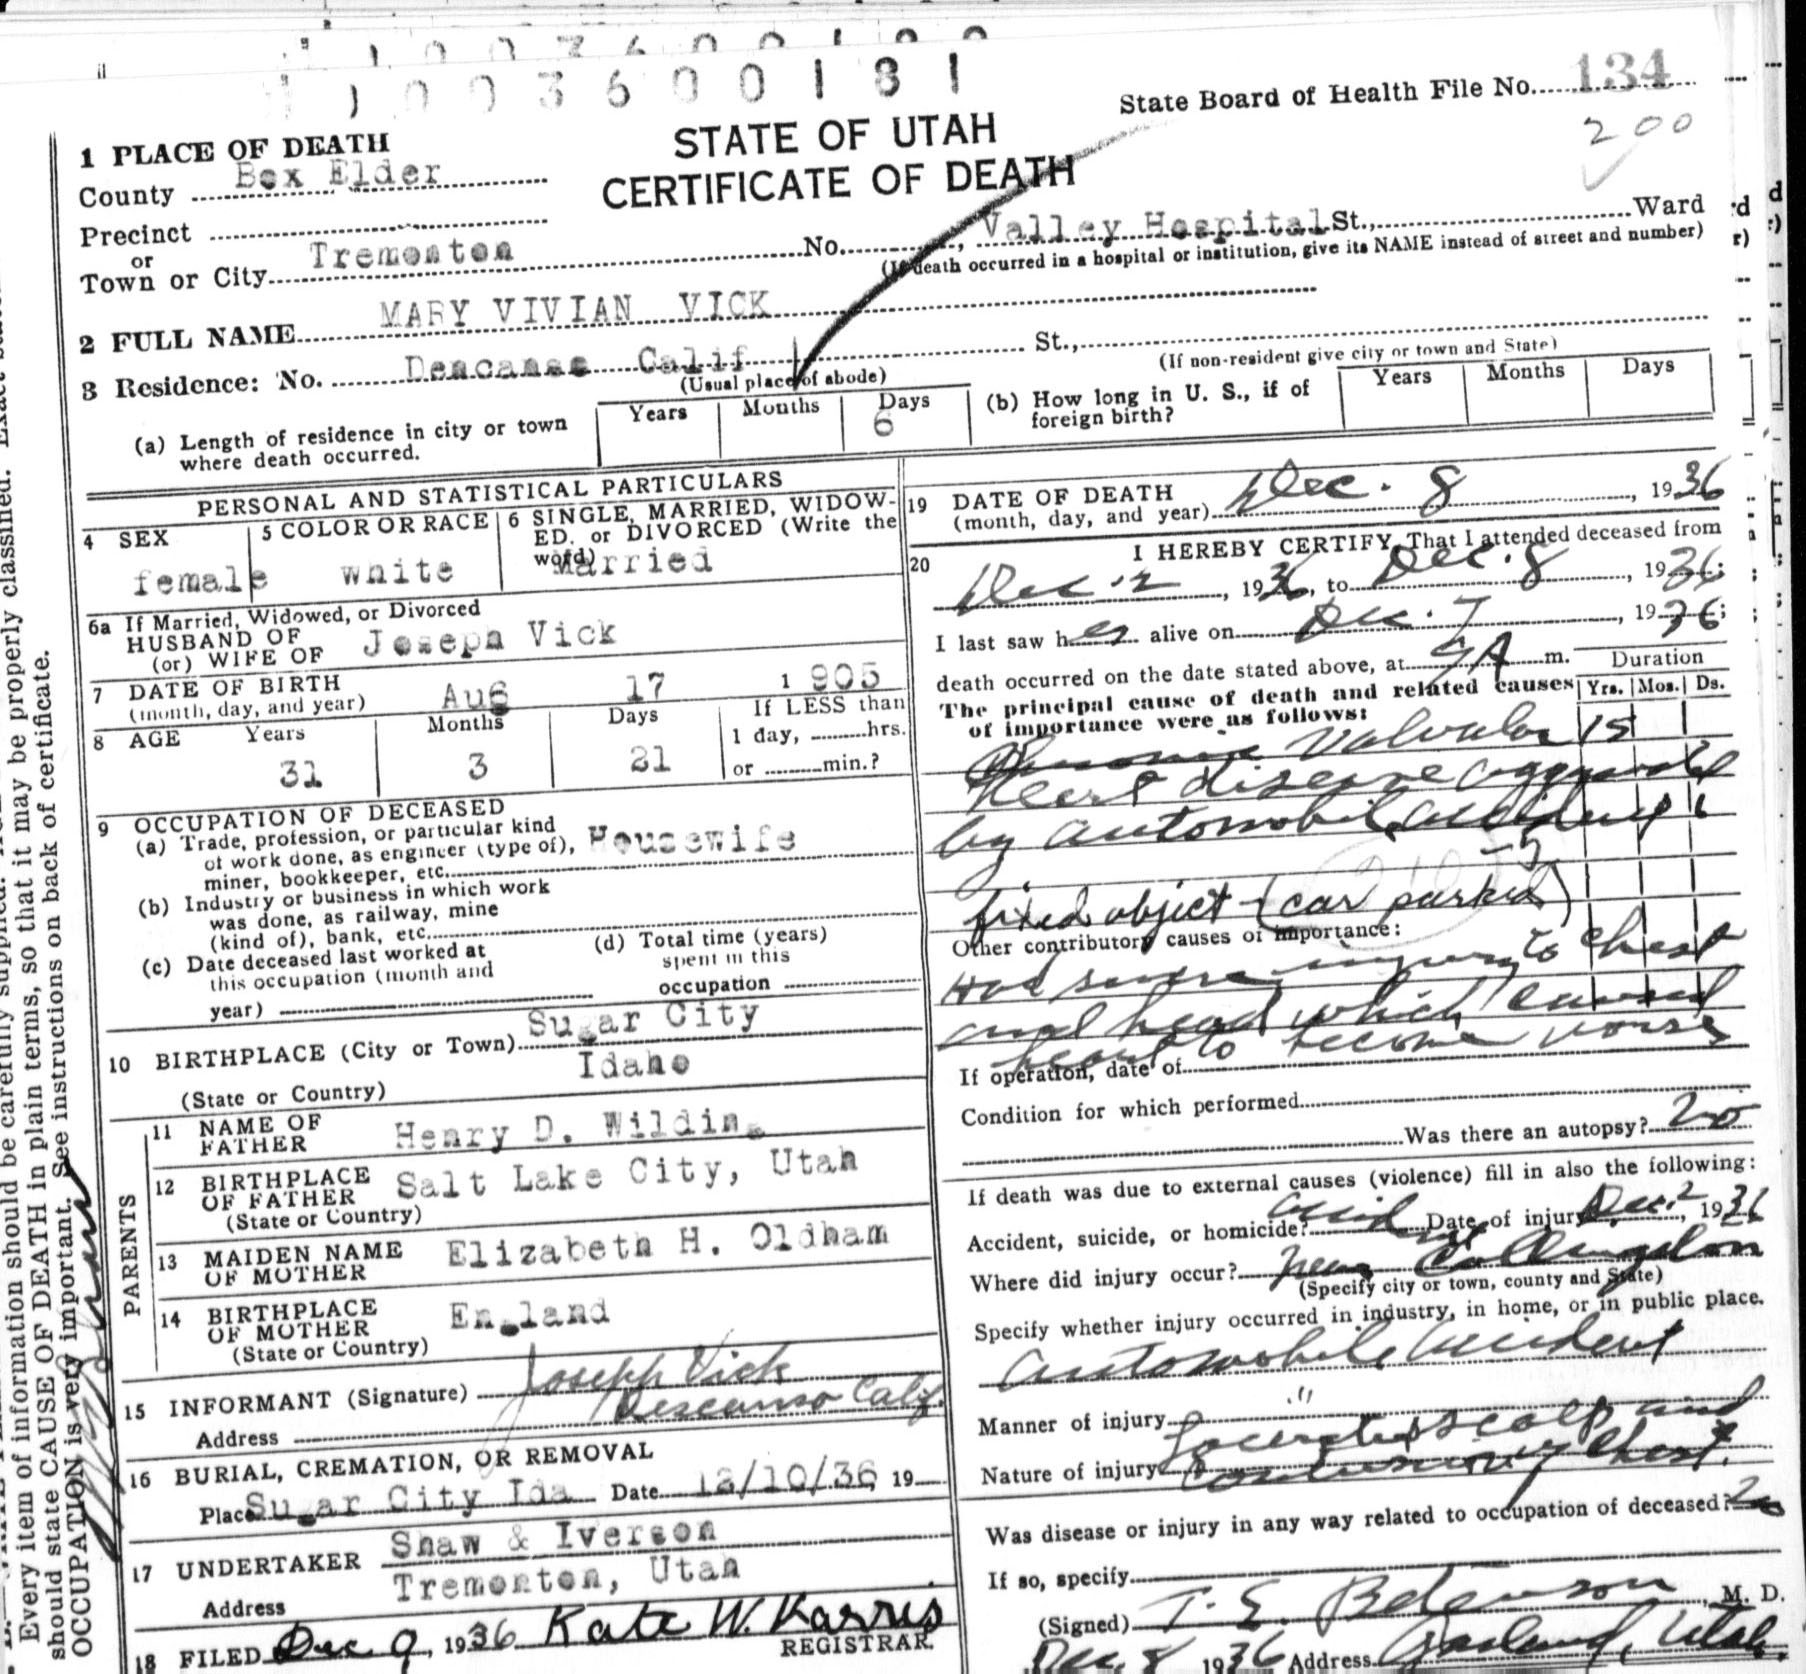 1003600181
State Board of Health File No. 134
200
STATE OF UTAH
CERTIFICATE OF DEATH
1 PLACE OF DEATH
County Box Elder
Precinct
or
Town or City Tremonton No. , Valley Hospital St., Ward
(If death occurred in a hospital or institution, give its NAME instead of street and number)
2 FULL NAME MARY VIVIAN VICK
3 Residence: No. Dencanse Calif St.,
(Usual place of abode) (If non-resident give city or town and State)
(a) Length of residence in city or town where death occurred. Years Months Days 6
(b) How long in U. S., if of foreign birth? Years Months Days
PERSONAL AND STATISTICAL PARTICULARS
4 SEX female
5 COLOR OR RACE white
6 SINGLE, MARRIED, WIDOWED, or DIVORCED (Write the word) Married
6a If Married, Widowed, or Divorced
HUSBAND OF
(or) WIFE OF Joseph Vick
7 DATE OF BIRTH
(month, day, and year) Aug 17 1905
8 AGE Years 31 Months 3 Days 21 If LESS than
1 day, hrs.
or min.?
9 OCCUPATION OF DECEASED
(a) Trade, profession, or particular kind
of work done, as engineer (type of),
miner, bookkeeper, etc. Housewife
(b) Industry or business in which work
was done, as railway, mine
(kind of), bank, etc.
(c) Date deceased last worked at
this occupation (month and
year)
(d) Total time (years)
spent in this
occupation
10 BIRTHPLACE (City or Town) Sugar City
Idaho
(State or Country)
PARENTS
11 NAME OF FATHER Henry D. Wilding
12 BIRTHPLACE OF FATHER Salt Lake City, Utah
(State or Country)
13 MAIDEN NAME OF MOTHER Elizabeth H. Oldham
14 BIRTHPLACE OF MOTHER England
(State or Country)
15 INFORMANT (Signature) Joseph Vick
Address Descanso Calif.
16 BURIAL, CREMATION, OR REMOVAL
Place Sugar City Ida Date 12/10/36, 19
17 UNDERTAKER Shaw & Iverson
Address Tremonton, Utah
18 FILED Dec 9, 1936 Kate W. Karris
REGISTRAR.
19 DATE OF DEATH
(month, day, and year) Dec. 8, 1936
20 I HEREBY CERTIFY, That I attended deceased from
Dec. 2, 1936, to Dec. 8, 1936;
I last saw her alive on Dec. 7, 1936;
death occurred on the date stated above, at 5 A m.
The principal cause of death and related causes
of importance were as follows:
Duration
Yrs. Mos. Ds.
Valvular 15
heart disease aggravated
by automobile accident
fixed object (car parked)
Other contributory causes of importance:
Had severe injury to chest
and head which caused
heart to become worse
If operation, date of
Condition for which performed
Was there an autopsy? no
If death was due to external causes (violence) fill in also the following:
Accident, suicide, or homicide? accident Date of injury Dec. 2, 1936
Where did injury occur? near Collingston
(Specify city or town, county and State)
Specify whether injury occurred in industry, in home, or in public place.
Automobile Accident
Manner of injury "
Nature of injury Lacerated scalp and
contusion of chest.
Was disease or injury in any way related to occupation of deceased? no
If so, specify
(Signed) T. E. M. D.
Dec. 8 1936 Address Garland, Utah
Every item of information should be carefully supplied.
should state CAUSE OF DEATH in plain terms, so that it may be properly classified. Exact
OCCUPATION is very important. See instructions on back of certificate.